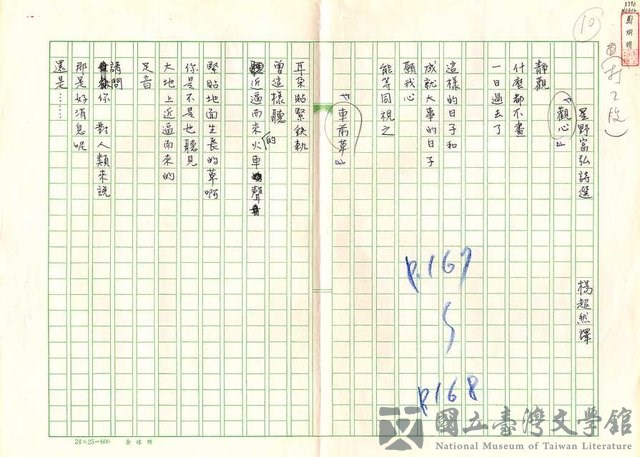 星野富弘詩選 楊超然譯
《觀心》
靜觀
什麼都不畫
一日過去了
這樣的日子和
成就大事的日子
願我心
能等同視之
《車前草》
耳朵貼緊鐵軌
曾這樣聽
近逼而來的火車聲音
緊貼地面生長的草啊
你是不是也聽見
大地上近逼而來的
足音
請問
你 對人類來說
那是好消息呢
還是……
10
P.167
P.168
24×25=600
國立臺灣文學館
National Museum of Taiwan Literature